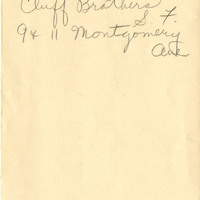 Cluff Brothers
S. F.
9 & 11 Montgomery
Ave